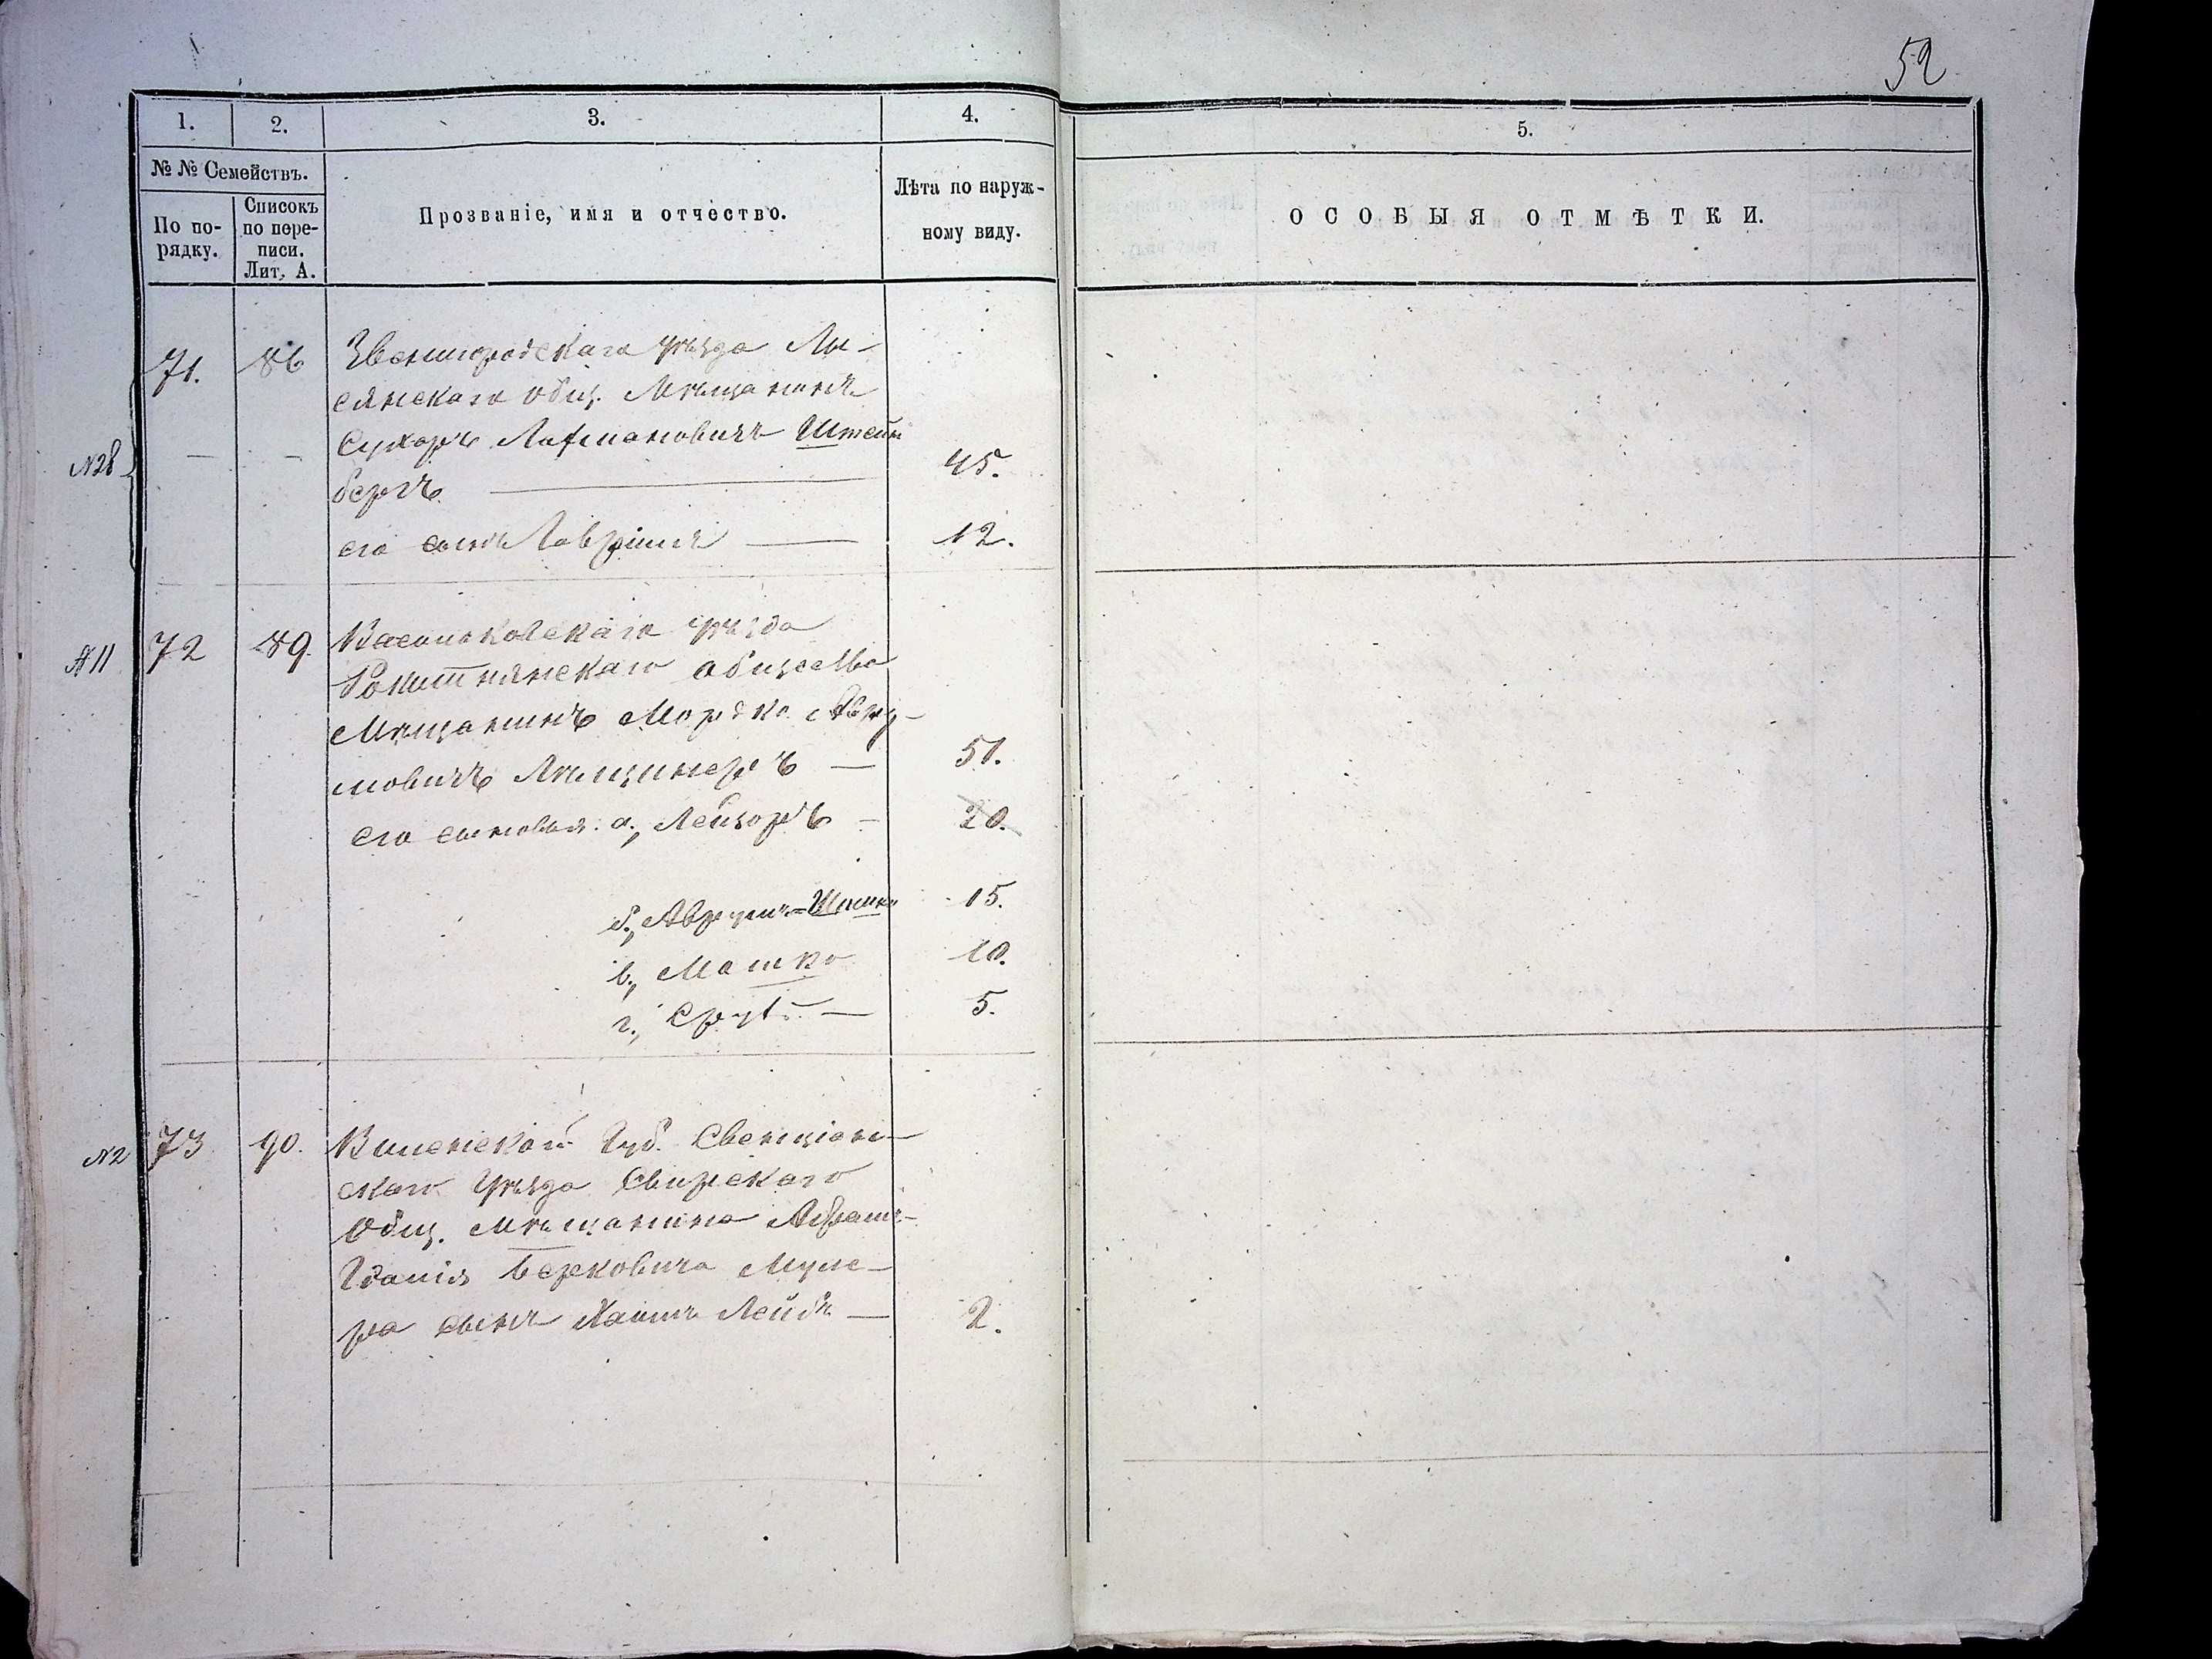 52
1. 2. 3. 4. 5.
№ № Семействъ.
По по-
рядку.
Списокъ
по пере-
писи.
Лит. А.
Прозваніе, имя и отчество.
Лѣта по наруж-
ному виду.
ОСОБЫЯ ОТМѢТКИ.
71. 86 Звенигородскаго уѣзда Лы-
сянскаго общ. Мѣщанинъ
Сухоръ Штейн
№28
бергъ 45.
его сынъ Гавріилъ 12.
№11 72 89. Васильковскаго уѣзда
Рокитнянскаго общества
Мѣщанинъ Мордко Авру-
мовичъ 51.
его сыновья: а., Лейзоръ 20.
б., Аврумъ= 15.
в., Мошко 10.
г., Сруль 5.
№2 73 90. Виленской Губ. Свенціон-
скаго Уѣзда Свирскаго
Общ. Мѣщанина Абрамъ-
Берковича Муле-
ра сынъ Хаимъ Лейбъ 2.